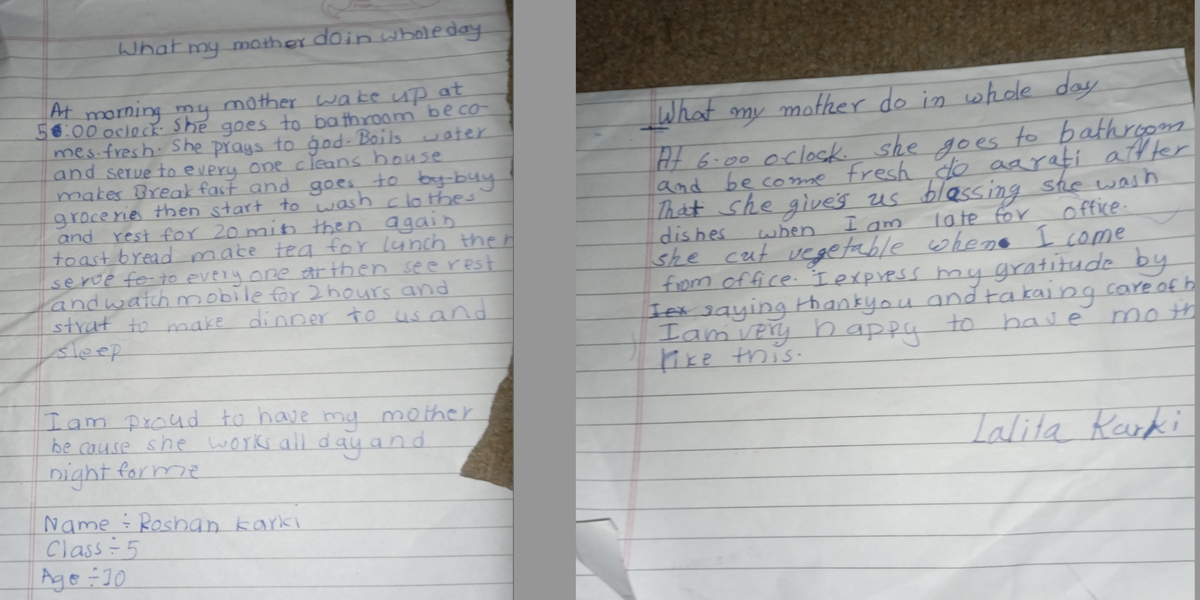 What my mother do in whole day
At morning my mother wake up at
5:00 oclock. She goes to bathroom beco-
mes fresh. She prays to god. Boils water
and serve to every one cleans house
makes Breakfast and goes to by buy
groceries then start to wash clothes
and rest for 20 min then again
toast bread make tea for lunch then
serve fo to every one ar then see rest
and watch mobile for 2 hours and
strat to make dinner to us and
sleep
I am proud to have my mother
because she works all day and
night for me
Name ÷ Roshan Karki
Class ÷ 5
Age ÷ 10
What my mother do in whole day
At 6.00 oclock. she goes to bathroom
and become fresh do aarati aftter
That she give's us blessing she wash
dishes when I am late for office.
she cut vegetable when I come
from office. I express my gratitude by
Iex saying thankyou and takaing care of h
I am very happy to have moth
like this.
Lalita Karki